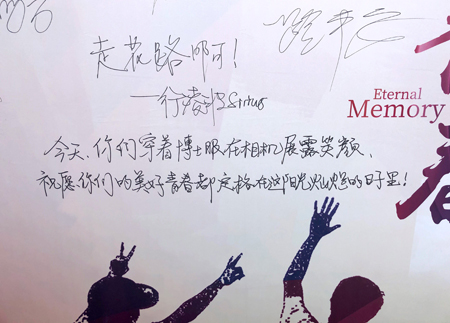 走花路啊！
Sirius
Eternal
Memory
青
春
今天、你们穿着博士服在相机展露笑颜、
祝愿你们的美好青春都定格在这阳光灿烂的日子里！